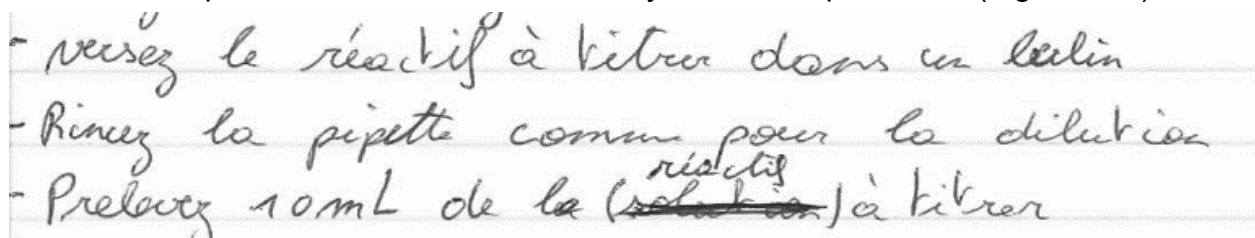 - versez le réactif à titrer dans un
- Rincez la pipette comme pour la dilution
réactif
- Prelevez 10mL de la (solution) à titrer